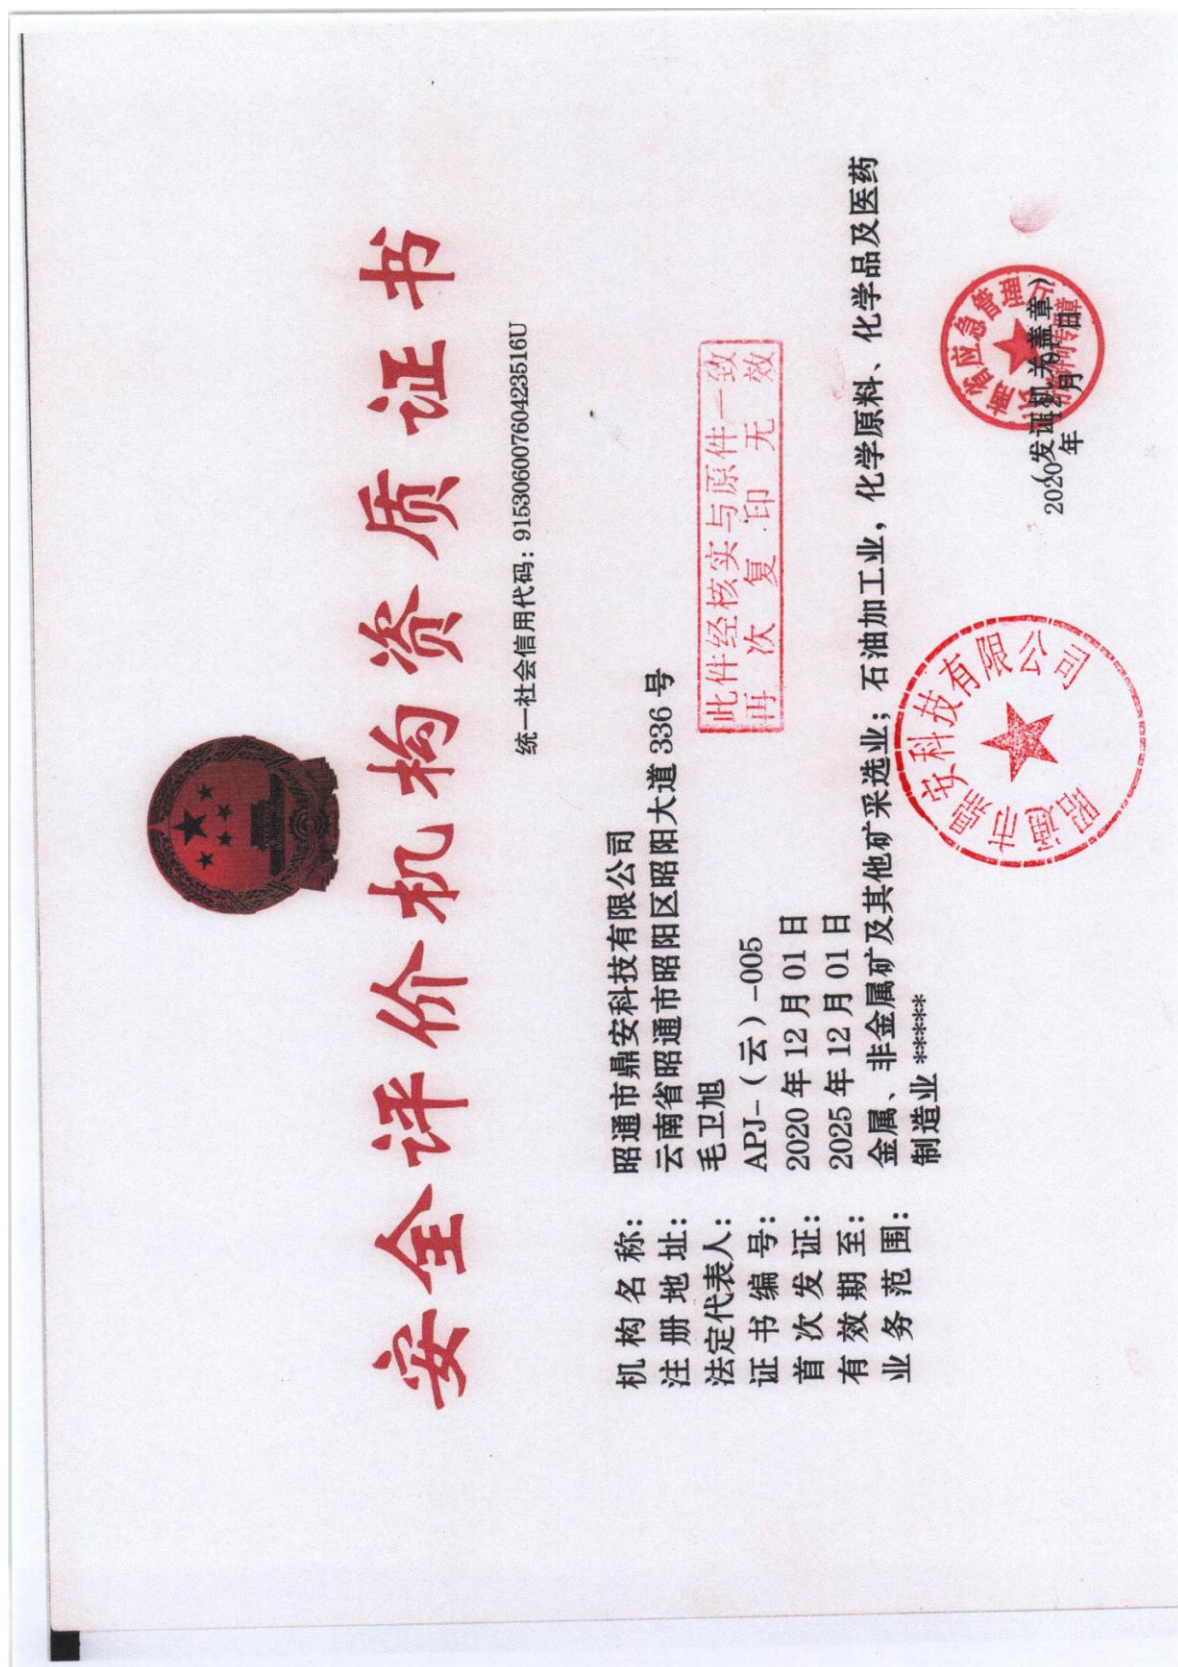 安全评价机构资质证书
统一社会信用代码：91530600760423516U
机构名称：昭通市鼎安科技有限公司
注册地址：云南省昭通市昭阳区昭阳大道 336 号
法定代表人：毛卫旭
证书编号：APJ-（云）-005
首次发证：2020 年 12 月 01 日
有效期至：2025 年 12 月 01 日
业务范围：金属、非金属矿及其他矿采选业；石油加工业，化学原料、化学品及医药
制造业 *****
此件经核实与原件一致
再次复印无效
昭通市鼎安科技有限公司
省应急管理
（发证机关盖章）
2020 年 12 月 01 日